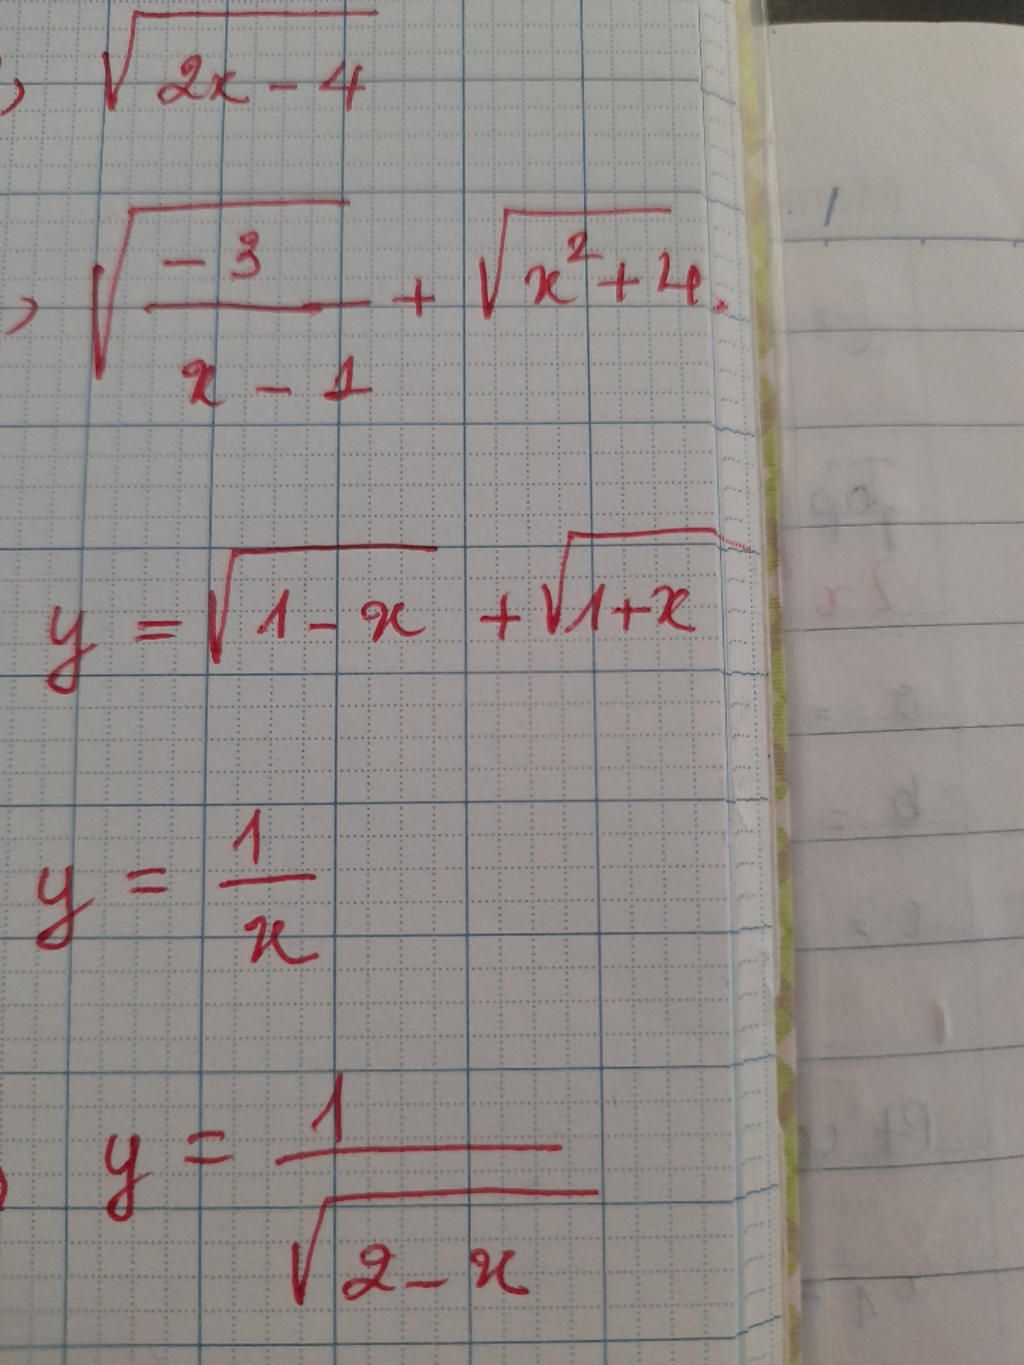 ) √(2x - 4)
) √(-3/(x - 1)) + √(x² + 4).
y = √(1 - x) + √(1 + x)
y = 1/x
) y = 1/√(2 - x)